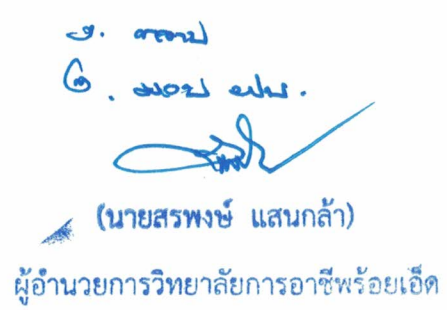 ๑. ทราบ
๒. มอบ ฝผ.
(นายสรพงษ์ แสนกล้า)
ผู้อำนวยการวิทยาลัยการอาชีพร้อยเอ็ด